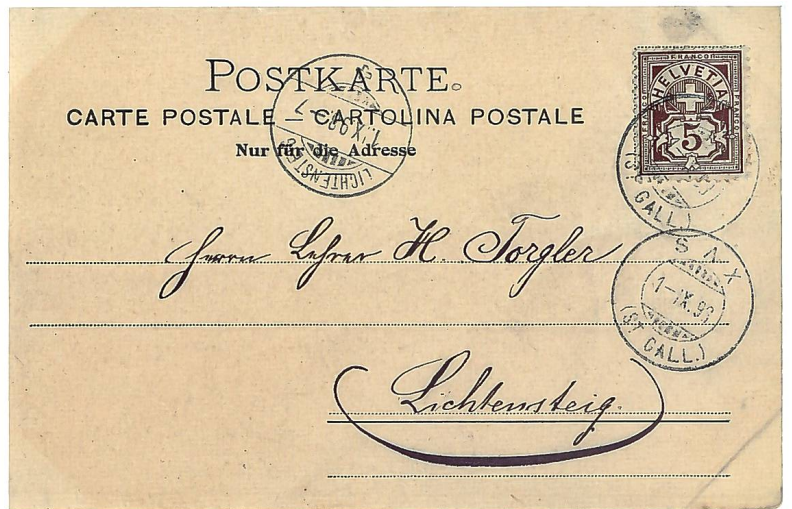 POSTKARTE.
CARTE POSTALE — CARTOLINA POSTALE
Nur für die Adresse
LICHTENSTEIG
1.IX.98 - 7
FRANCO
HELVETIA
FRANCO
FRANCO
5
GALL.)
SAX
1-IX.98
(ST GALL.)
Herrn Lehrer H. Torgler
Lichtensteig.